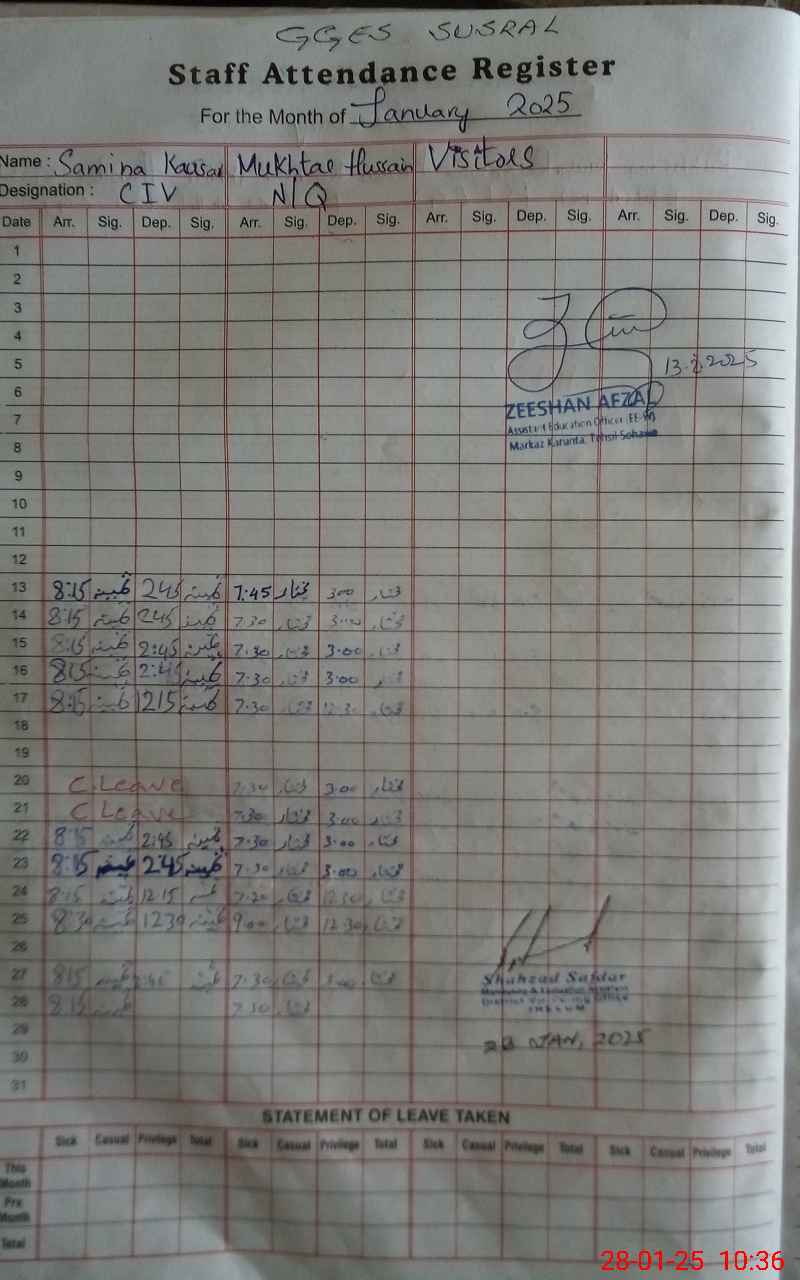 GGES SUSRAL
Staff Attendance Register
For the Month of January 2025
Name : Samina Kausar Mukhtar Hussain Visitors
Designation : CIV N/Q
Date Arr. Sig. Dep. Sig. Arr. Sig. Dep. Sig. Arr. Sig. Dep. Sig. Arr. Sig. Dep. Sig.
1
2
3
4
5 13.1.2025
6 ZEESHAN AFZAL
7 Assistant Education Officer (EE-W)
8 Markaz Karunta, Tehsil Sohawa
9
10
11
12
13 8:15 ثمینہ 245 ثمینہ 7:45 مختار 300 مختار
14 8:15 ثمینہ 245 ثمینہ 7.30 مختار 3.00 مختار
15 8:15 ثمینہ 2:45 ثمینہ 7.30 مختار 3.00 مختار
16 8:15 ثمینہ 2:45 ثمینہ 7.30 مختار 3.00
17 8:15 ثمینہ 1215 ثمینہ 7.30 مختار 12.30 مختار
18
19
20 C Leave 7.30 مختار 3.00 مختار
21 C Leave 7.30 مختار 3.00 مختار
22 8:15 ثمینہ 2:45 ثمینہ 7.30 مختار 3.00 مختار
23 8:15 ثمینہ 2:45 ثمینہ 7.30 مختار 3.00 مختار
24 8:15 ثمینہ 12:15 ثمینہ 7.20 مختار 12.30 مختار
25 8:30 ثمینہ 1230 ثمینہ 9.00 مختار 12.30 مختار
26
27 8:15 ثمینہ 2:45 ثمینہ 7.30 مختار 3.00 مختار
Shahzad Safdar
28 8:15 ثمینہ 7.30 مختار
JHELUM
29
28 JAN, 2025
30
31
STATEMENT OF LEAVE TAKEN
Sick Casual Privilege Total Sick Casual Privilege Total Sick Casual Privilege Total Sick Casual Privilege Total
This Month
Prv Month
Total
28-01-25 10:36